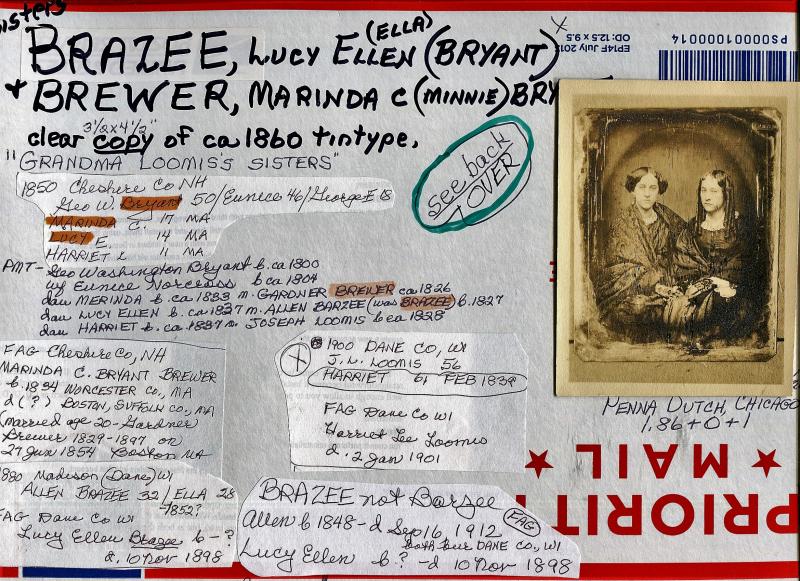 Sisters
BRAZEE, LUCY ELLEN (ELLA) (BRYANT)
+ BREWER, MARINDA C (MINNIE) BRY
3½x4½"
clear copy of ca 1860 tintype.
"GRANDMA LOOMIS'S SISTERS"
see back
OVER
X
EP14F July 2013
OD: 12.5 x 9.5
PS00001000014
1850 Cheshire Co NH
Geo W. Bryant 50/Eunice 46/George E 18
MARINDA C. 17 MA
LUCY E. 14 MA
HARRIET L 11 MA
PMT- Geo Washington Bryant b. ca 1800
w/ Eunice Norcross b ca 1804
dau MERINDA b. ca 1833 m. GARDNER BREWER ca 1826
dau LUCY ELLEN b. ca 1837 m. ALLEN BARZEE (was BRAZEE) b. 1827
dau HARRIET b. ca 1837 m JOSEPH LOOMIS b ca 1828
FAG Cheshire Co, NH
MARINDA C. BRYANT BREWER
b. 1834 WORCESTER CO., MA
d (?) BOSTON, SUFFOLK CO., MA
(married age 20 - Gardner
Brewer 1829-1897 on
27 Jun 1854 Boston MA
1880 Madison (Dane) WI
ALLEN BRAZEE 32 / ELLA 28
1852?
FAG Dane Co WI
Lucy Ellen Brazee b - ?
d. 10 Nov 1898
X
1900 DANE CO, WI
J. L. LOOMIS 56
HARRIET b. FEB 1839
FAG Dane Co WI
Harriet Lee Loomis
d. 2 Jan 1901
BRAZEE not Barzee
Allen b 1848 - d Sep 16, 1912 (FAG)
both bur DANE CO., WI
Lucy Ellen b. ? - d 10 Nov 1898
PENNA DUTCH, CHICAGO
1.86+0+1
PRIORIT
MAIL